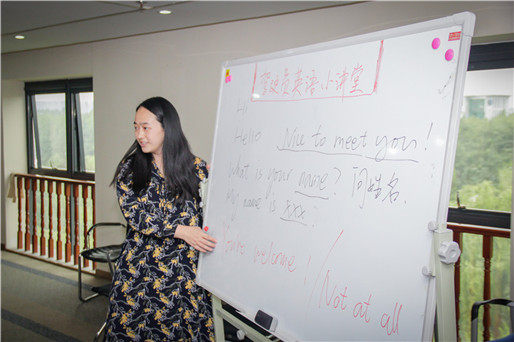 驾驶员英语小讲堂
Hi
Hello Nice to meet you!
What is your name? 问姓名.
My name is xxx.
You're welcome! / Not at all